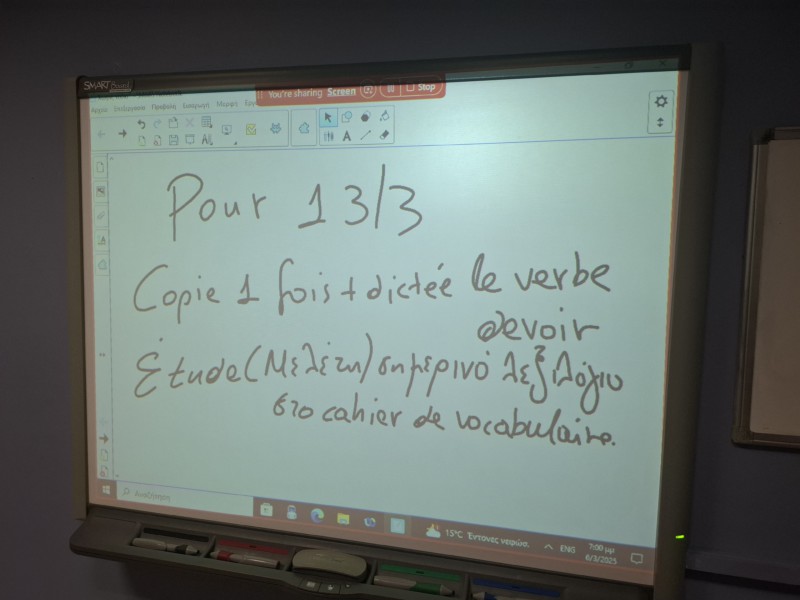 SMART Board
You're sharing Screen Stop
Προβολή Εισαγωγή Μορφή
Pour 13/3
Copie 1 fois + dictée le verbe
devoir
Étude (Μελέτη) σημερινό λεξιλόγιο
στο cahier de vocabulaire.
Αναζήτηση
15°C Έντονες νεφώσ.
ENG
7:00 μμ
6/3/2025